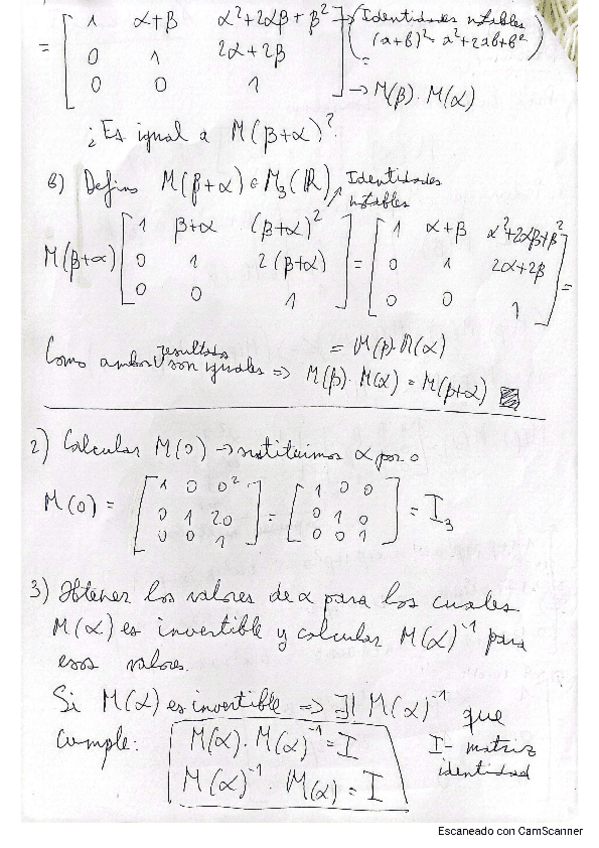 = [ 1 α+β α²+2αβ+β² ] → Identidades notables
(a+b)² = a²+2ab+b²
0 1 2α+2β
0 0 1 → M(β)·M(α)
¿Es igual a M(β+α)?
b) Defino M(β+α) ∈ M₃(ℝ) Identidades
notables
M(β+α) [ 1 β+α (β+α)² ] = [ 1 α+β α²+2αβ+β² ]
0 1 2(β+α) 0 1 2α+2β =
0 0 1 0 0 1
= M(β)·M(α)
Como ambos resultados son iguales => M(β)·M(α) = M(β+α)
2) Calcular M(0) → sustituimos α por 0
M(0) = [ 1 0 0² ] = [ 1 0 0 ] = I₃
0 1 2·0 0 1 0
0 0 1 0 0 1
3) Obtener los valores de α para los cuales
M(α) es invertible y calcular M(α)⁻¹ para
esos valores.
Si M(α) es invertible => ∃! M(α)⁻¹ que
cumple: M(α)·M(α)⁻¹ = I I - matriz
M(α)⁻¹·M(α) = I identidad
Escaneado con CamScanner